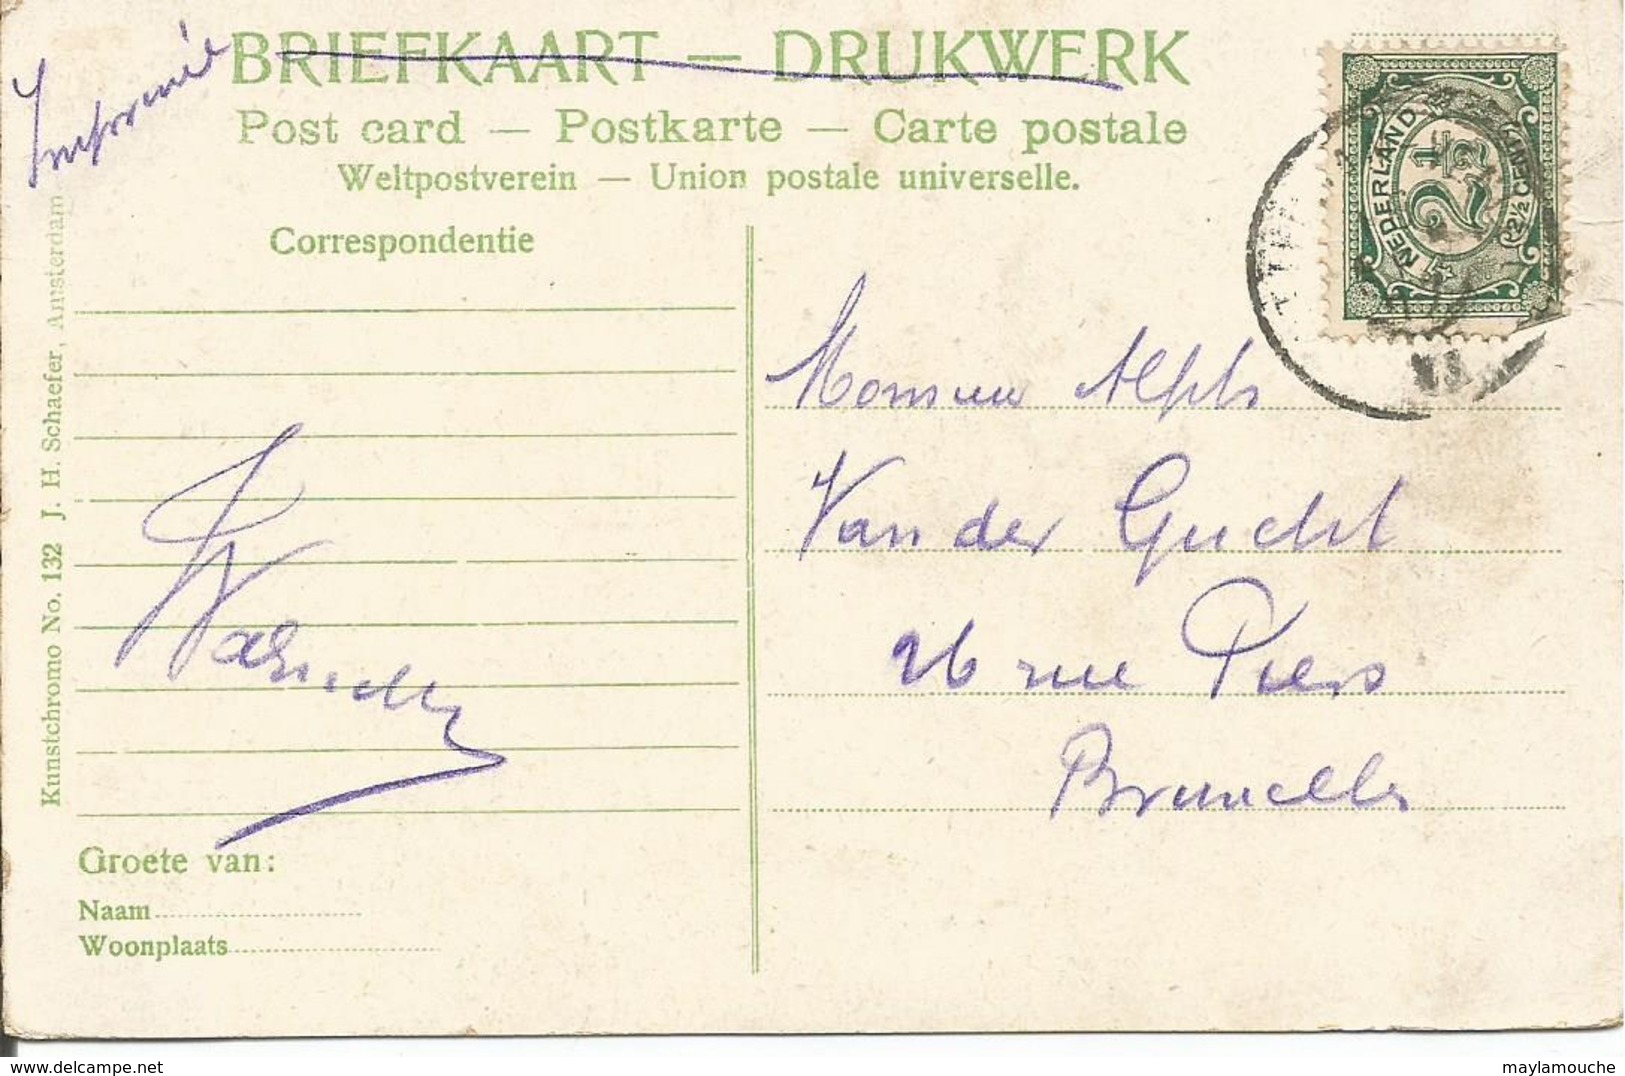 Imprimé
BRIEFKAART — DRUKWERK
Post card — Postkarte — Carte postale
Weltpostverein — Union postale universelle.
Correspondentie
NEDERLAND
2½
2½ CENT
Monsieur Alph
Van der Gucht
26 rue Piers
Bruxelles
Kunstchromo No. 132 J. H. Schaefer, Amsterdam
Groete van:
Naam
Woonplaats
maylamouche